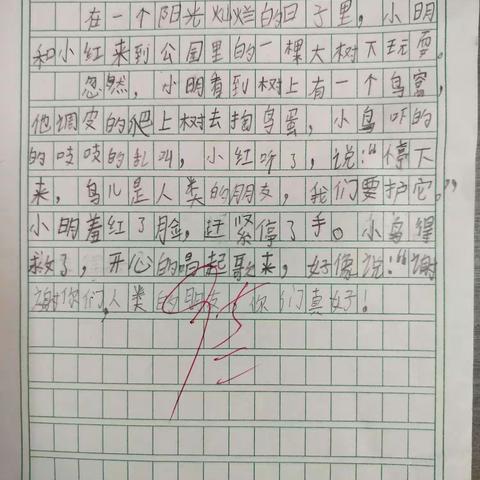 在一个阳光灿烂的日子里，小明
和小红来到公园里的一棵大树下玩耍。
忽然，小明看到树上有一个鸟窝，
他调皮的爬上树去掏鸟蛋，小鸟吓的
的吱吱的乱叫，小红听了，说：“停下
来，鸟儿是人类的朋友，我们要护它。”
小明羞红了脸，赶紧停了手。小鸟得
救了，开心的唱起歌来，好像说：“谢
谢你们，人类的朋友，你们真好！